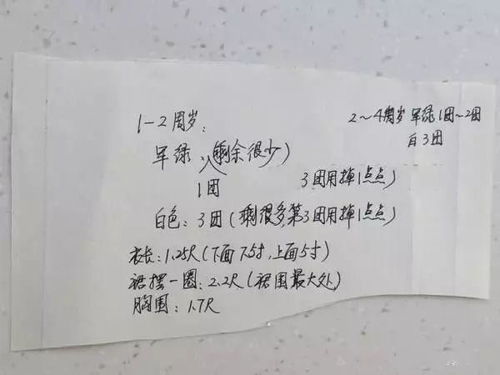 1-2周岁:
2~4周岁 军绿1团~2团
白3团
军绿:(剩余很少)
1团
3团用掉1点点)
白色:3团(剩很多第3团用掉1点点)
衣长:1.25尺(下面7.5寸,上面5寸)
裙摆一圈:2.2尺(裙围最大处)
胸围:1.7尺